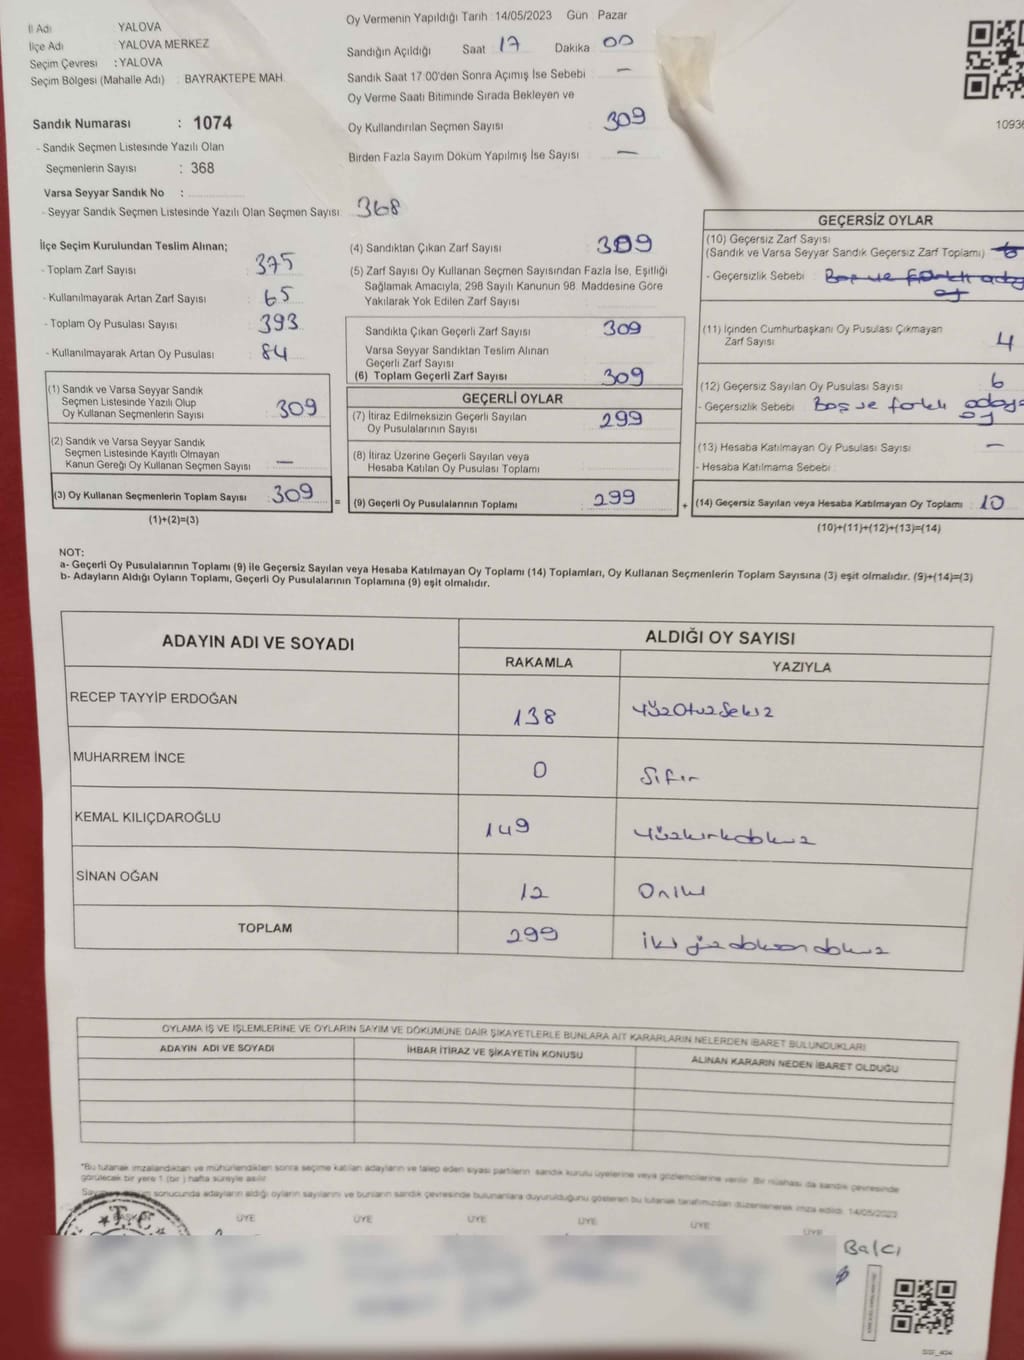 İl Adı YALOVA
İlçe Adı : YALOVA MERKEZ
Seçim Çevresi : YALOVA
Seçim Bölgesi (Mahalle Adı) : BAYRAKTEPE MAH.
Sandık Numarası : 1074
- Sandık Seçmen Listesinde Yazılı Olan
Seçmenlerin Sayısı : 368
Varsa Seyyar Sandık No :
- Seyyar Sandık Seçmen Listesinde Yazılı Olan Seçmen Sayısı: 368
Oy Vermenin Yapıldığı Tarih : 14/05/2023 Gün : Pazar
Sandığın Açıldığı Saat 17 Dakika 00
Sandık Saat 17:00'den Sonra Açılmış İse Sebebi —
Oy Verme Saati Bitiminde Sırada Bekleyen ve
Oy Kullandırılan Seçmen Sayısı 309
Birden Fazla Sayım Döküm Yapılmış İse Sayısı —
1093
İlçe Seçim Kurulundan Teslim Alınan;
- Toplam Zarf Sayısı 375
- Kullanılmayarak Artan Zarf Sayısı : 65
- Toplam Oy Pusulası Sayısı 393
- Kullanılmayarak Artan Oy Pusulası : 84
(1) Sandık ve Varsa Seyyar Sandık
Seçmen Listesinde Yazılı Olup
Oy Kullanan Seçmenlerin Sayısı 309
(2) Sandık ve Varsa Seyyar Sandık
Seçmen Listesinde Kayıtlı Olmayan
Kanun Gereği Oy Kullanan Seçmen Sayısı —
(3) Oy Kullanan Seçmenlerin Toplam Sayısı : 309 =
(1)+(2)=(3)
(4) Sandıktan Çıkan Zarf Sayısı 309
(5) Zarf Sayısı Oy Kullanan Seçmen Sayısından Fazla İse, Eşitliği
Sağlamak Amacıyla; 298 Sayılı Kanunun 98. Maddesine Göre
Yakılarak Yok Edilen Zarf Sayısı
Sandıkta Çıkan Geçerli Zarf Sayısı : 309
Varsa Seyyar Sandıktan Teslim Alınan
Geçerli Zarf Sayısı
(6) Toplam Geçerli Zarf Sayısı : 309
GEÇERLİ OYLAR
(7) İtiraz Edilmeksizin Geçerli Sayılan
Oy Pusulalarının Sayısı 299
(8) İtiraz Üzerine Geçerli Sayılan veya
Hesaba Katılan Oy Pusulası Toplamı
(9) Geçerli Oy Pusulalarının Toplamı : 299 +
GEÇERSİZ OYLAR
(10) Geçersiz Zarf Sayısı
(Sandık ve Varsa Seyyar Sandık Geçersiz Zarf Toplamı) : 6
- Geçersizlik Sebebi : Boş ve farklı aday
oy
(11) İçinden Cumhurbaşkanı Oy Pusulası Çıkmayan
Zarf Sayısı 4
(12) Geçersiz Sayılan Oy Pusulası Sayısı 6
- Geçersizlik Sebebi : Boş ve farklı adaya
oy
(13) Hesaba Katılmayan Oy Pusulası Sayısı : —
- Hesaba Katılmama Sebebi
(14) Geçersiz Sayılan veya Hesaba Katılmayan Oy Toplamı : 10
(10)+(11)+(12)+(13)=(14)
NOT:
a- Geçerli Oy Pusulalarının Toplamı (9) ile Geçersiz Sayılan veya Hesaba Katılmayan Oy Toplamı (14) Toplamları, Oy Kullanan Seçmenlerin Toplam Sayısına (3) eşit olmalıdır. (9)+(14)=(3)
b- Adayların Aldığı Oyların Toplamı, Geçerli Oy Pusulalarının Toplamına (9) eşit olmalıdır.
ADAYIN ADI VE SOYADI ALDIĞI OY SAYISI
RAKAMLA YAZIYLA
RECEP TAYYİP ERDOĞAN 138 Yüzotuzsekiz
MUHARREM İNCE 0 Sıfır
KEMAL KILIÇDAROĞLU 149 Yüzkırkdokuz
SİNAN OĞAN 12 Oniki
TOPLAM 299 İki yüz doksan dokuz
OYLAMA İŞ VE İŞLEMLERİNE VE OYLARIN SAYIM VE DÖKÜMÜNE DAİR ŞİKAYETLERLE BUNLARA AİT KARARLARIN NELERDEN İBARET BULUNDUKLARI
ADAYIN ADI VE SOYADI İHBAR İTİRAZ VE ŞİKAYETİN KONUSU ALINAN KARARIN NEDEN İBARET OLDUĞU
*Bu tutanak imzalandıktan ve mühürlendikten sonra seçime katılan adayların ve talep eden siyasi partilerin sandık kurulu üyelerine veya gözlemcilerine verilir. Bir nüshası da sandık çevresinde
görülecek bir yere 1 (bir ) hafta süreyle asılır
sonucunda adayların aldığı oyların sayılarını ve bunların sandık çevresinde bulunanlara duyurulduğunu gösteren bu tutanak tarafımızdan düzenlenerek imza edildi. 14/05/2023
BAŞKAN ÜYE ÜYE ÜYE ÜYE ÜYE ÜYE
T.C.
Balcı